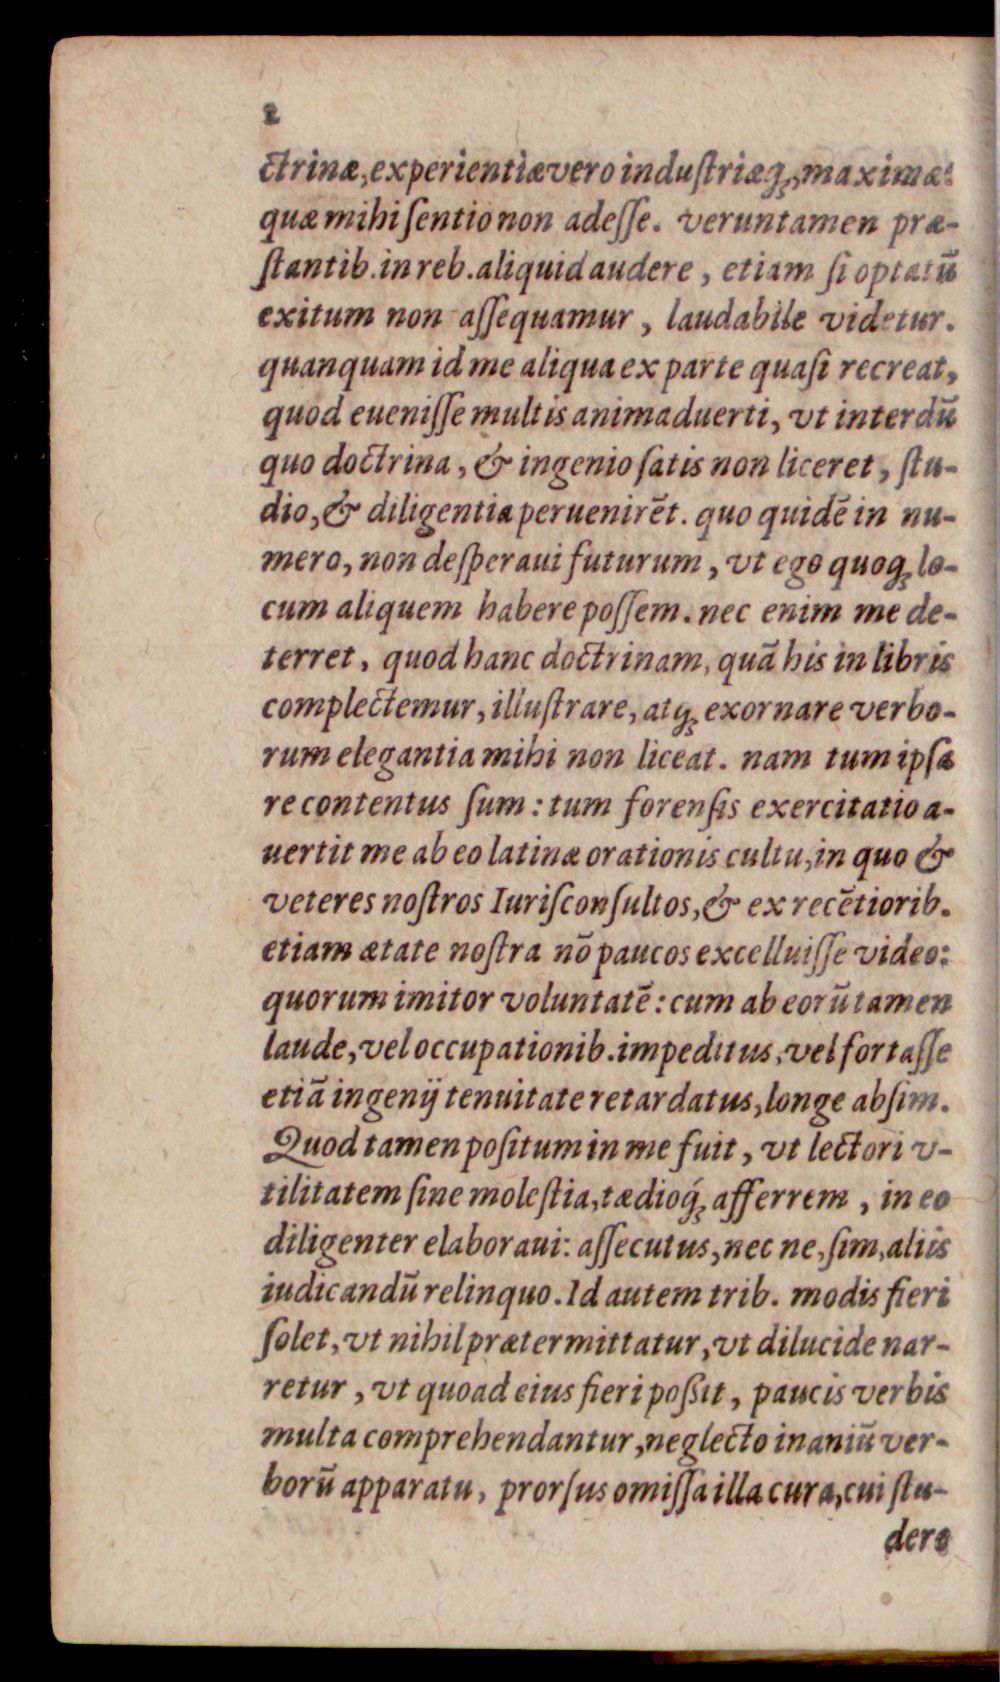 2
ctrinæ, experientiæ vero induſtriæq́;, maximæ:
quæ mihi ſentio non adeſſe. veruntamen præ-
ſtantib. in reb. aliquid audere, etiam ſi optatũ
exitum non aſſequamur, laudabile videtur.
quanquam id me aliqua ex parte quaſi recreat,
quod eueniſſe multis animaduerti, vt interdũ
quo doctrina, & ingenio ſatis non liceret, ſtu-
dio, & diligentia peruenirẽt. quo quidẽ in nu-
mero, non deſperaui futurum, vt ego quoq; lo-
cum aliquem habere poſſem. nec enim me de-
terret, quod hanc doctrinam, quã his in libris
complectemur, illuſtrare, atq; exornare verbo-
rum elegantia mihi non liceat. nam tum ipſa
re contentus ſum: tum forenſis exercitatio a-
uertit me ab eo latinæ orationis cultu, in quo &
veteres noſtros Iuriſconſultos, & ex recẽtiorib.
etiam ætate noſtra nõ paucos excelluiſſe video:
quorum imitor voluntatẽ: cum ab eorũ tamen
laude, vel occupationib. impeditus, vel fortaſſe
etiã ingenij tenuitate retardatus, longe abſim.
Quod tamen poſitum in me fuit, vt lectori v-
tilitatem ſine moleſtia, tædioq́; afferrem, in eo
diligenter elaboraui: aſſecutus, nec ne, ſim, aliis
iudicandũ relinquo. Id autem trib. modis fieri
ſolet, vt nihil prætermittatur, vt dilucide nar-
retur, vt quoad eius fieri poßit, paucis verbis
multa comprehendantur, neglecto inaniũ ver-
borũ apparatu, prorſus omiſſa illa cura, cui ſtu-
dere